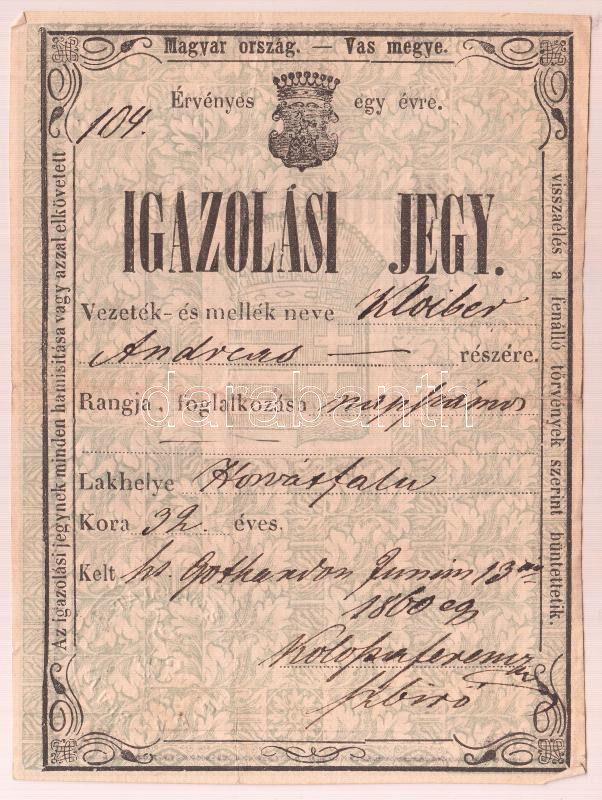 Magyar ország. — Vas megye.
Érvényes egy évre.
104.
IGAZOLÁSI JEGY.
Vezeték- és mellék neve Kloiber
Andreas — részére.
Rangja, foglalkozása napszámos
Lakhelye Horvátfalu
Kora 32. éves.
Kelt Gothardon Junius 13
1860
szbiró
Az igazolási jegynek minden hamisítása vagy azzal elkövetett
visszaélés a fenálló törvények szerint büntettetik.
darabanth